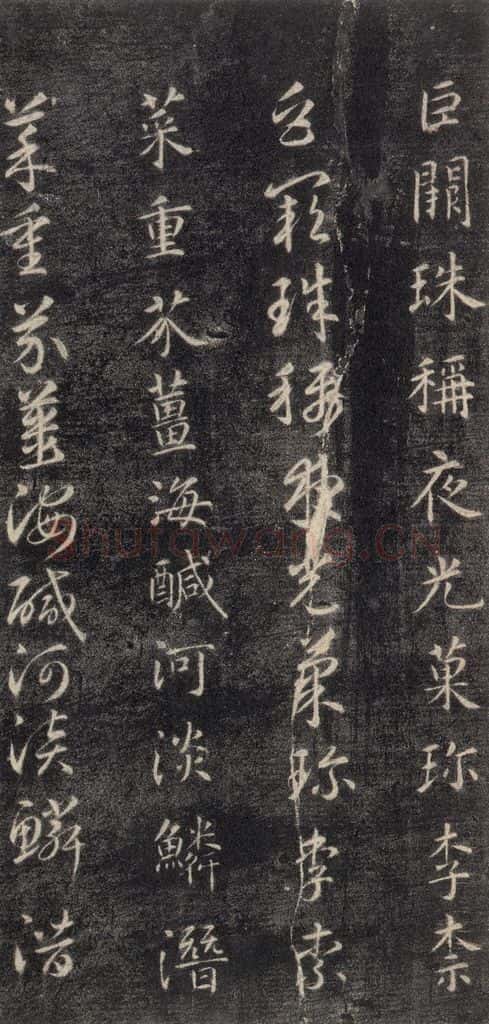 巨闕珠稱夜光菓珍李柰
巨闕珠稱夜光菓珍李柰
菜重芥薑海醎河淡鱗潛
菜重芥薑海醎河淡鱗潛
shufawang.CN